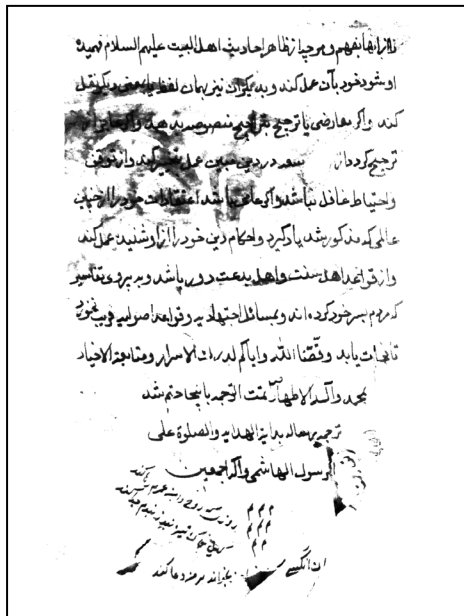 نزانها بفهم و هرچه از ظاهر احادیث اهل البیت علیهم السلام فهمیده
او شود خود بآن عمل کند و بدیگران نیز بهمان لفظ یا بمعنی دیگر نقل
کند و اگر معارضی با ترجیح بتراجیح منصوصه بدهد و اگر عاجز از
ترجیح گردد از در دین مبین عمل کند و از توقف
و احتیاط غافل نباشد و اگر عامی باشد اعتقادات خود را از چنین
عالمی که مذکور شد یاد گیرد و احکام دین خود را از او شنیده عمل کند
و از قواعد اهل سنت و اهل بدعت دور باشد و به پیروی تفاسیر
که مردم بسر خود کرده اند و بمسائل اجتهادیه و قواعد اصولیه فریب نخورد
تا نجات یابد وفقنا الله و ایاکم لدرک الاسرار و متابعة الاخیار
بمحمد و آله الاطهار تمت الترجمه باینجا ختم شد
ترجمه رساله بدایة الهدایه و الصلوة علی
الرسول الهاشمی و آله اجمعین
م م م
م م م
م م
بخواند مرمرا دعا کند